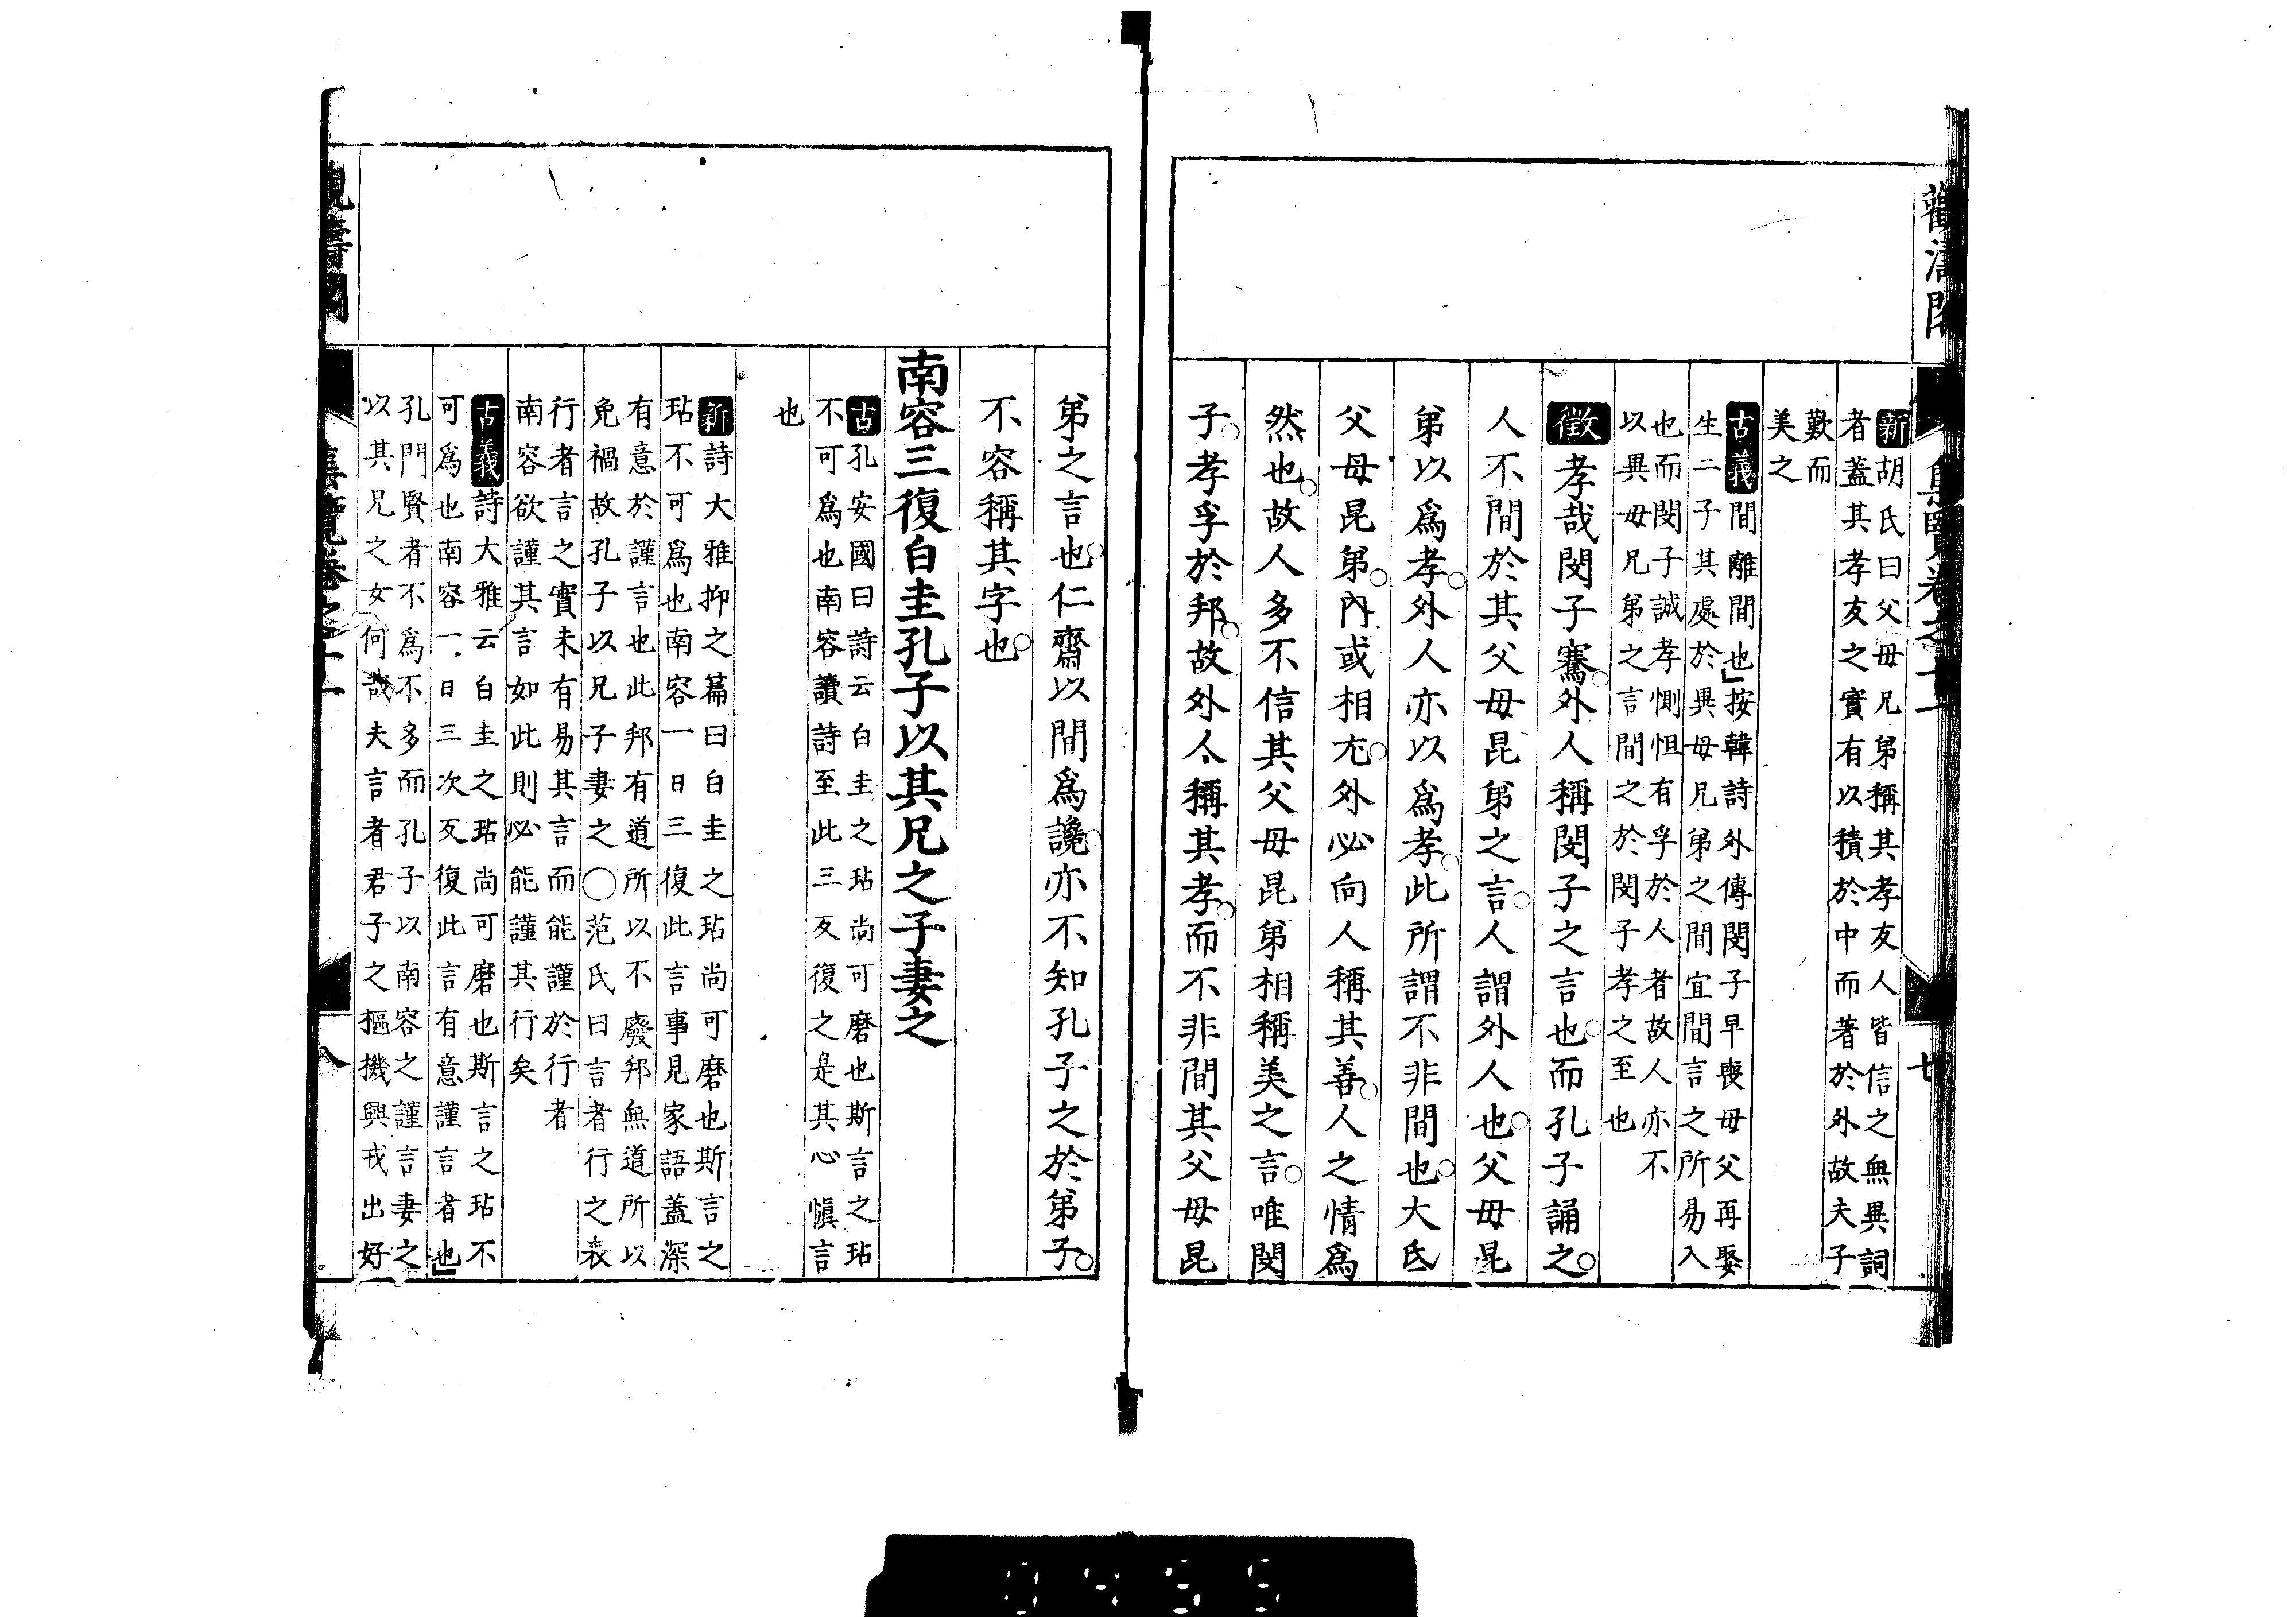 觀濤閣
集覽卷之十一
新胡氏曰父母兄弟稱其孝友人皆信之無異詞
者蓋其孝友之實有以積於中而著於外故夫子
歎而
美之
古義間離間也按韓詩外傳閔子早喪母父再娶
生二子其處於異母兄弟之間宜間言之所易入
也而閔子誠孝惻怛有孚於人者故人亦不
以異母兄弟之言間之於閔子孝之至也
徵孝哉閔子騫外人稱閔子之言也而孔子誦之
人不間於其父母昆弟之言人謂外人也父母昆
弟以爲孝外人亦以爲孝此所謂不非間也大氐
父母昆弟內或相尤外必向人稱其善人之情爲
然也故人多不信其父母昆弟相稱美之言唯閔
子孝孚於邦故外人稱其孝而不非間其父母昆
弟之言也仁齋以間爲讒亦不知孔子之於弟子
不容稱其字也
南容三復白圭孔子以其兄之子妻之
古孔安國曰詩云白圭之玷尚可磨也斯言之玷
不可爲也南容讀詩至此三反復之是其心愼言
也
新詩大雅抑之篇曰白圭之玷尚可磨也斯言之
玷不可爲也南容一日三復此言事見家語蓋深
有意於謹言也此邦有道所以不廢邦無道所以
免禍故孔子以兄子妻之○范氏曰言者行之表
行者言之實未有易其言而能謹於行者
南容欲謹其言如此則必能謹其行矣
古義詩大雅云白圭之玷尚可磨也斯言之玷不
可爲也南容一日三次反復此言有意謹言者也
孔門賢者不爲不多而孔子以南容之謹言妻之
以其兄之女何哉夫言者君子之樞機興戎出好
集覽卷之十一
0455